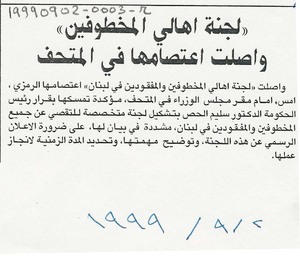 19990902-0003-R
«لجنة اهالي المخطوفين»
واصلت اعتصامها في المتحف
واصلت «لجنة اهالي المخطوفين والمفقودين في لبنان» اعتصامها الرمزي،
امس، امام مقر مجلس الوزراء في المتحف، مؤكدة تمسكها بقرار رئيس
الحكومة الدكتور سليم الحص بتشكيل لجنة متخصصة للتقصي عن جميع
المخطوفين والمفقودين في لبنان، مشددة في بيان لها، على ضرورة الاعلان
الرسمي عن هذه اللجنة، وتوضيح مهمتها، وتحديد المدة الزمنية لانجاز
عملها.
١٩٩٩ / ٩ / ٢